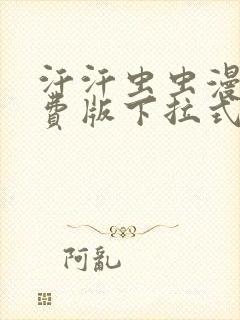 汗汗虫虫漫
费版下拉式
阿亂